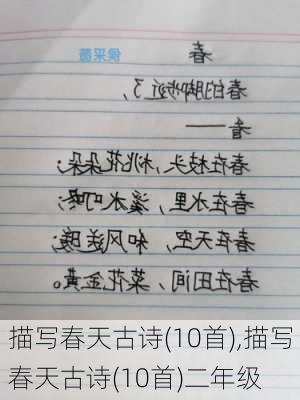 春 侯采薇
春的脚步近了,
看——
春在枝头,桃花朵朵;
春在水里,溪水叮咚;
春在天空,和风送暖;
春在田间,菜花金黄。
描写春天古诗(10首),描写
春天古诗(10首)二年级